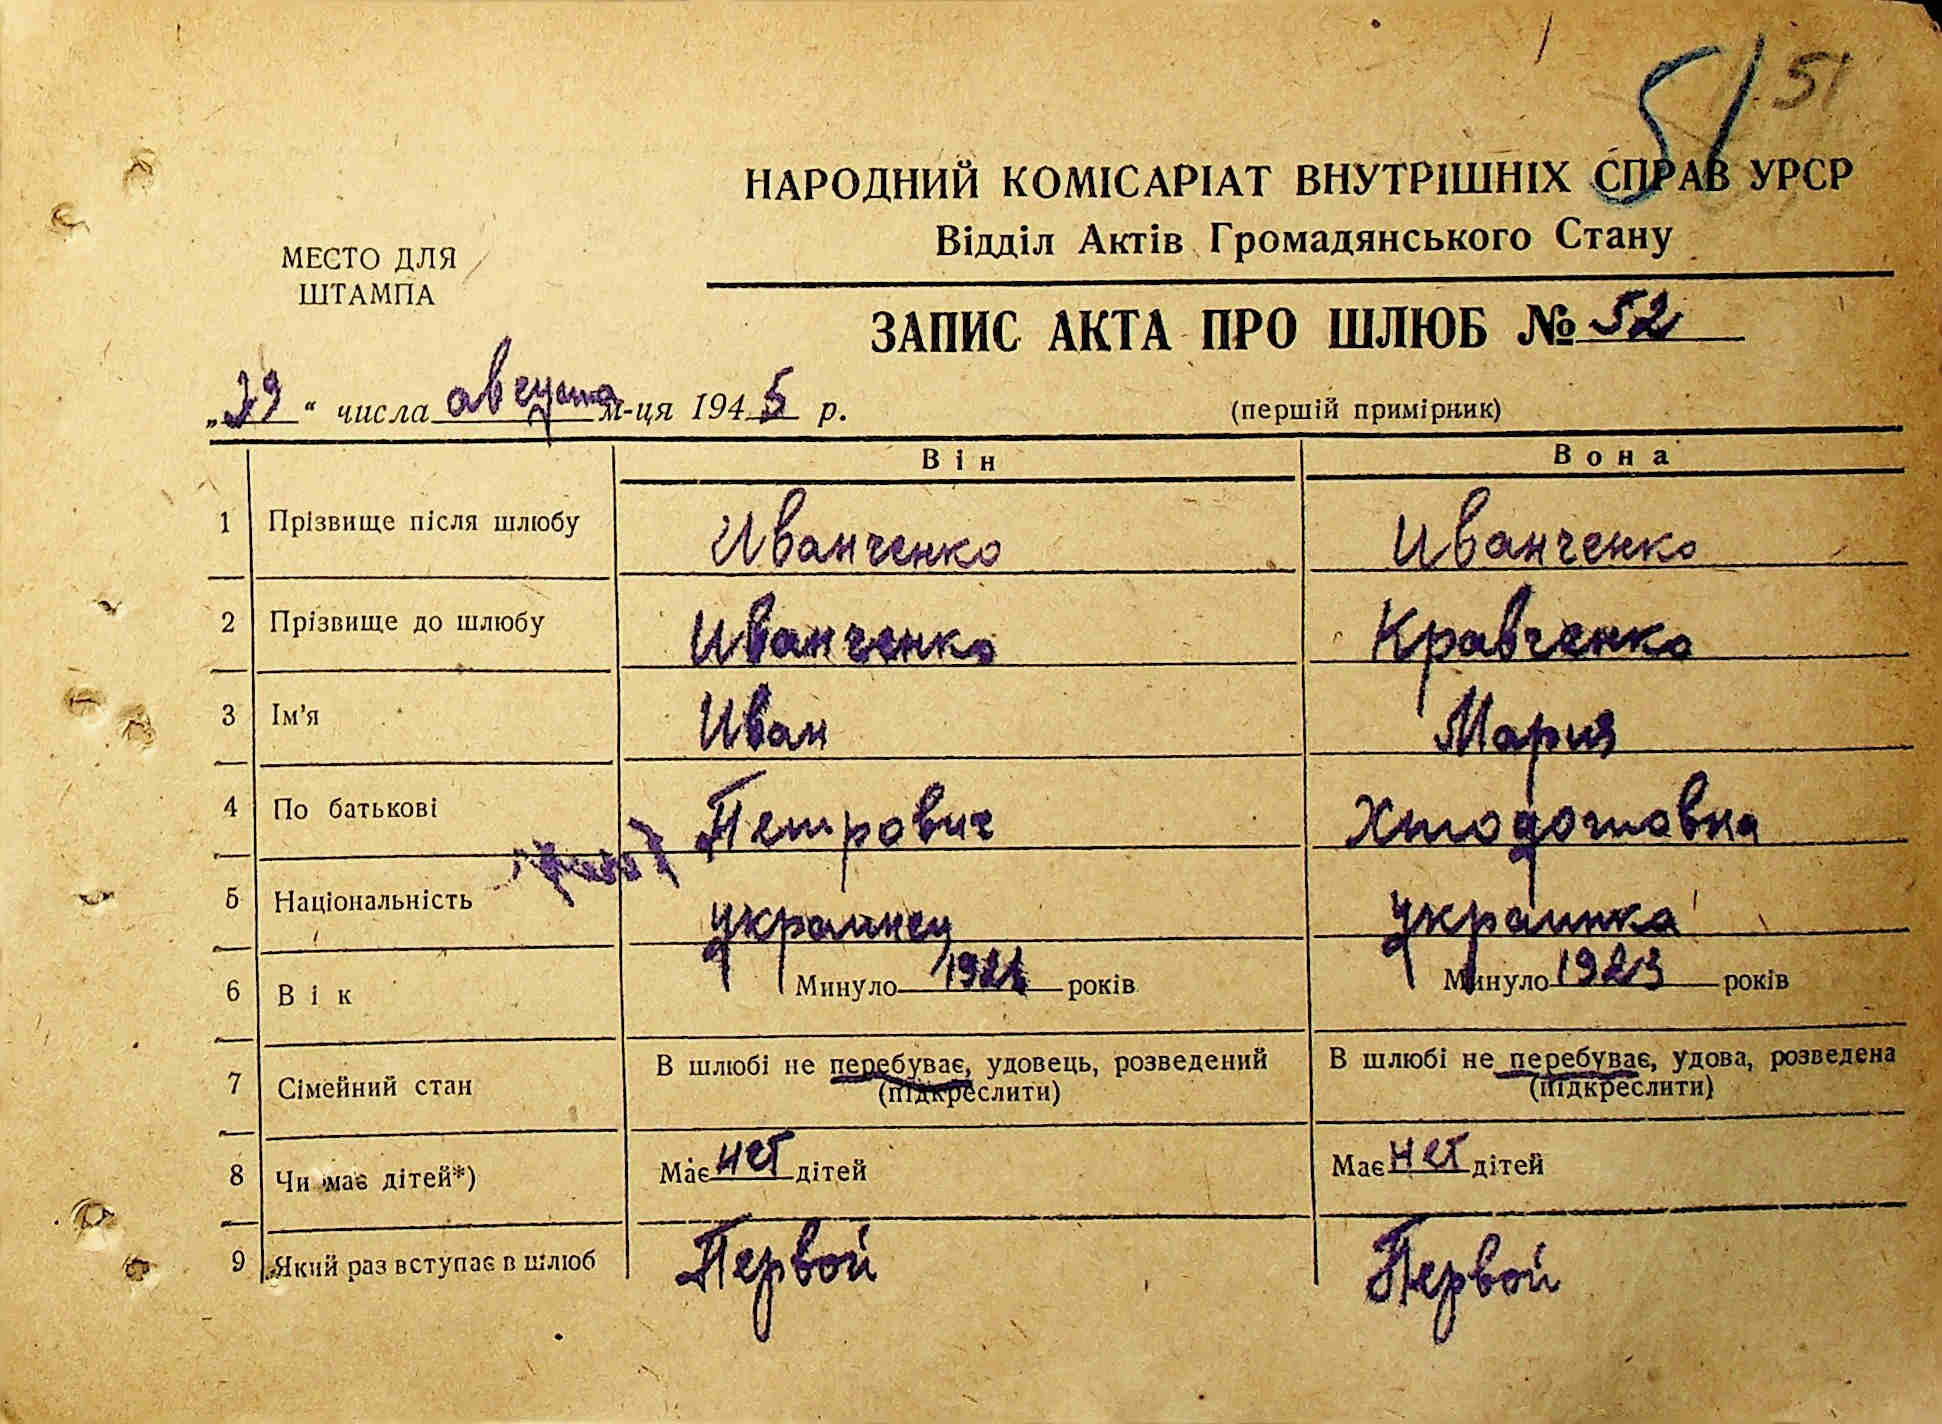 51 51
НАРОДНИЙ КОМІСАРІАТ ВНУТРІШНІХ СПРАВ УРСР
Відділ Актів Громадянського Стану
МЕСТО ДЛЯ
ШТАМПА
ЗАПИС АКТА ПРО ШЛЮБ № 52
„29“ числа августа м-ця 1945 р.
(першій примірник)
Він Вона
1 Прізвище після шлюбу Иванченко Иванченко
2 Прізвище до шлюбу Иванченко Кравченко
3 Ім'я Иван Мария
4 По батькові Петрович
5 Національність украинец украинка
6 Вік Минуло років Минуло 1923 років
7 Сімейний стан В шлюбі не перебуває, удовець, розведений В шлюбі не перебуває, удова, розведена
(підкреслити) (підкреслити)
8 Чи має дітей*) Має нет дітей Має нет дітей
9 Який раз вступає в шлюб Первой Первой